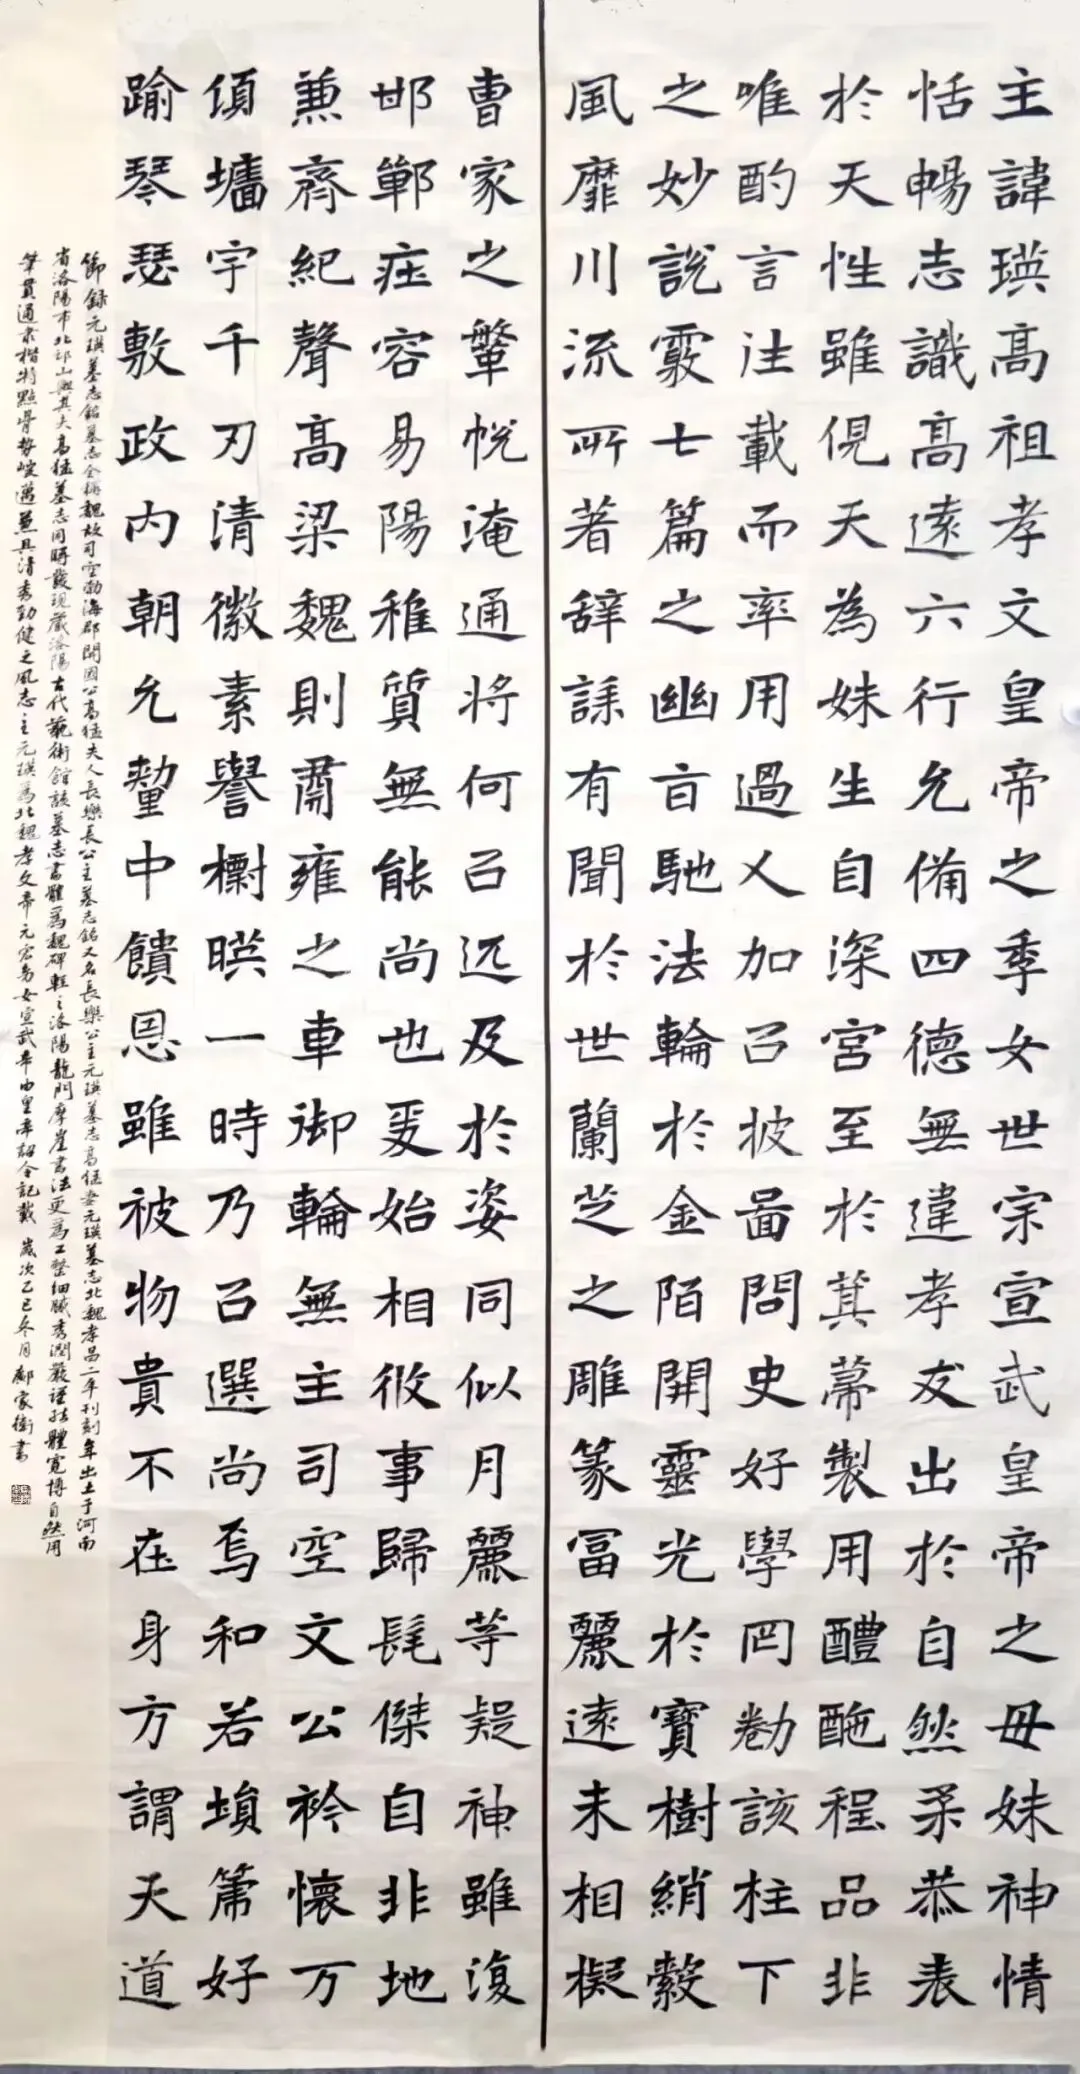 主諱瑛高祖孝文皇帝之季女世宗宣武皇帝之母妹神情
恬暢志識高遠六行允備四德無違孝友出於自然柔恭表
於天性雖俔天為妹生自深宮至於箕帚製用醴酏程品非
唯酌言往載而率用過人加㠯披啚問史好學罔勌該柱下
之妙說覈七篇之幽旨馳法輪於金陌開靈光於寶樹綃縠
風靡川流所著辞誄有聞於世蘭芝之雕篆冨麗遠未相擬
曹家之鞶帨淹通將何㠯远及於姿同似月麗等疑神雖復
邯鄲莊容易陽稚質無能尚也爰始相攸事歸髦傑自非地
兼齊紀聲高梁魏則肅雍之車御輪無主司空文公衿懷万
頃墻宇千刃清徽素譽櫛暎一時乃㠯選尚焉和若塤箎好
踰琴瑟敷政內朝允釐中饋恩雖被物貴不在身方謂天道
節錄元瑛墓志銘墓志全稱魏故司空勃海郡開國公高猛夫人長樂長公主墓志銘又名長樂公主元瑛墓志高猛妻元瑛墓志北魏孝昌二年刊刻年出土于河南
省洛陽市北邙山與其夫高猛墓志同時發現藏洛陽古代藝術館該墓志書體爲魏碑較之洛陽龍門摩崖書法更爲工整細膩秀潤嚴謹結體寬博自然用
筆貫通隶楷特點骨势峻邁兼具清秀勁健之風志主元瑛爲北魏孝文帝元宏女宣武帝由皇帝詔令記載 歲次乙巳冬月 家衛書